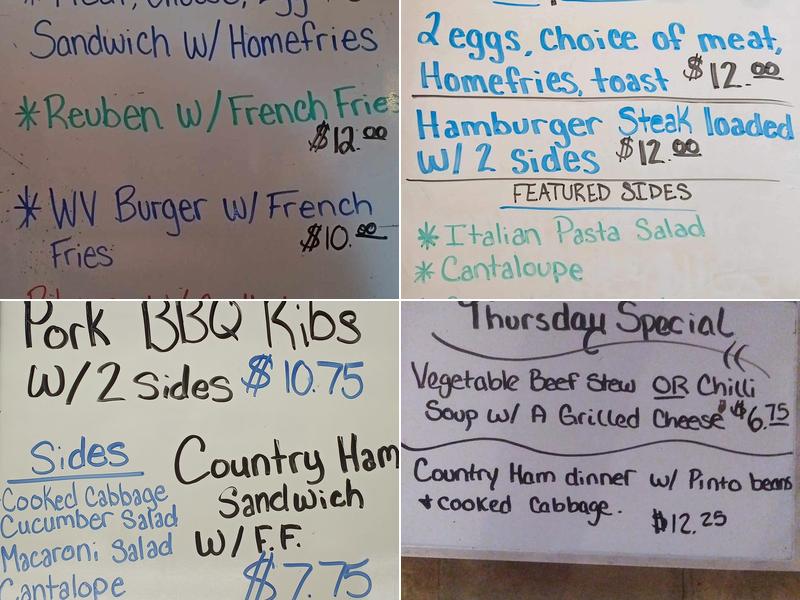 Sandwich w/ Homefries
* Reuben w/ French Fries
$12.00
* WV Burger w/ French
$10.00
Fries
2 eggs, choice of meat,
Homefries, toast $12.00
Hamburger Steak loaded
w/ 2 sides $12.00
FEATURED SIDES
* Italian Pasta Salad
* Cantaloupe
Pork BBQ Ribs
w/ 2 sides $10.75
Sides
Cooked Cabbage
Cucumber Salad
Macaroni Salad
Cantalope
Country Ham
Sandwich
w/ F.F.
$7.75
Thursday Special
Vegetable Beef Stew OR Chilli
Soup w/ A Grilled Cheese $6.75
Country Ham dinner w/ Pinto beans
+ cooked Cabbage.
$12.25